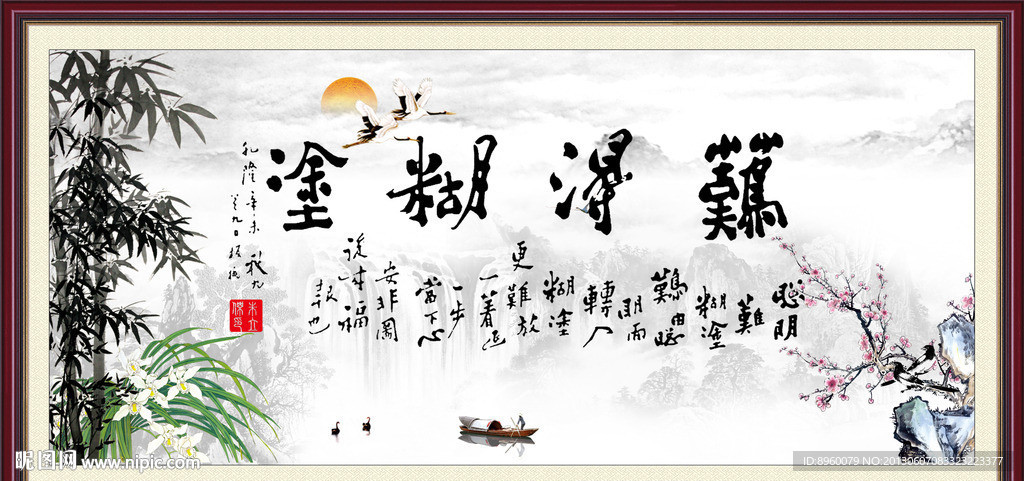 難得糊塗
聰明
難
糊塗
難由聰
明而
轉入
糊塗
更難放
一著退
一步
當下心
安非圖
後來福
報也
乾隆辛未秋九
九日板橋
昵图网 www.nipic.com
ID:8960079 NO:20130607083323223377